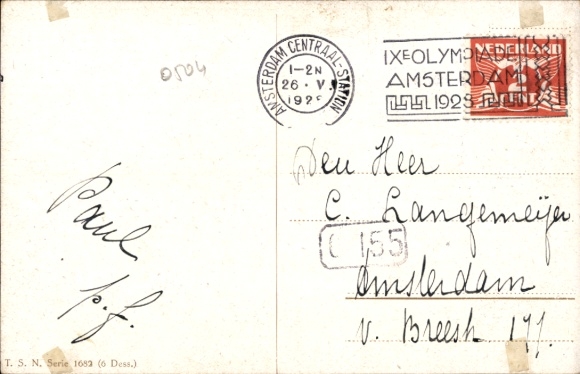 0504
AMSTERDAM CENTRAAL-STATION
1-2N
26 · V
192
IXE OLYMPIADE
AMSTERDAM
1928
NEDERLAND
2
CENT
Den Heer
C. Langemeijer
C 155
Amsterdam
v. Breesh 177.
Paul
p.f.
T. S. N. Serie 1683 (6 Dess.)